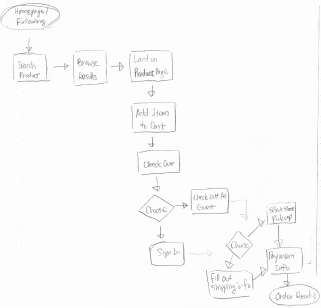 Homepage/
Following
Search
Product
Browse
Results
Land on
Product Page
Add Item
to Cart
Check Out
Choose
Check Out As
Guest
Sign In
Choose
Store
Pickup
Fill Out
Shipping info
Payment
Info
Order Ready